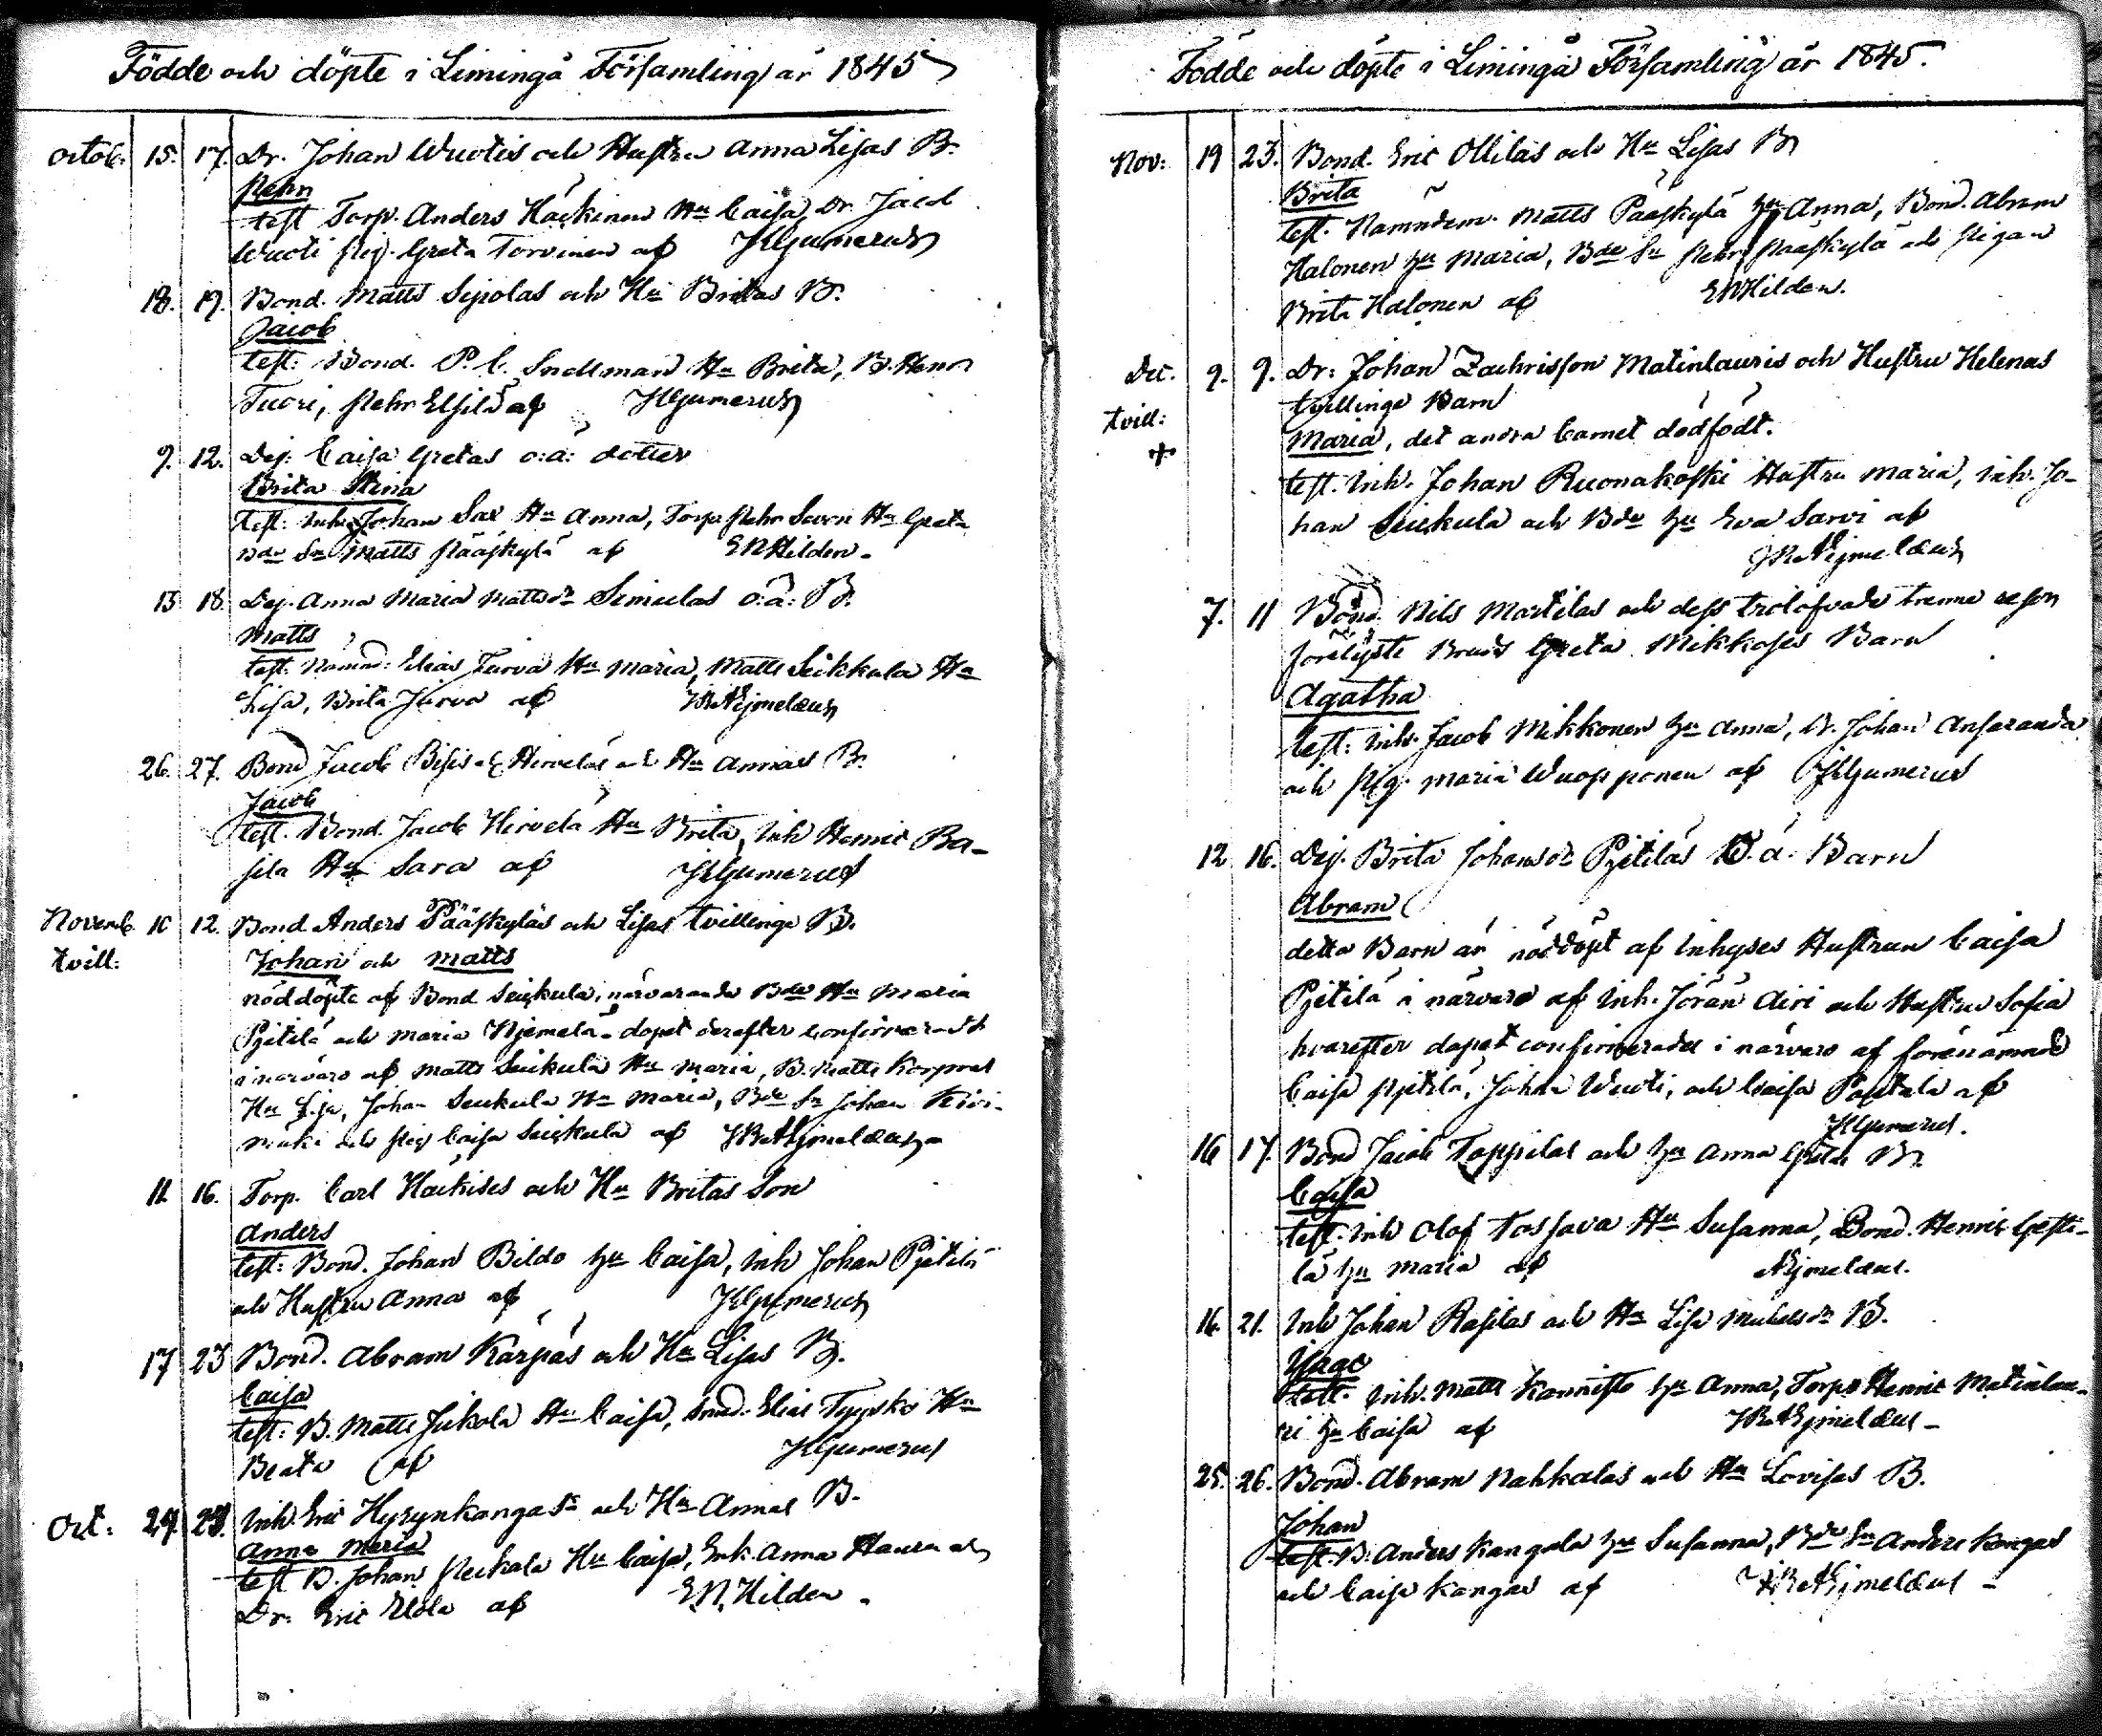 Födde och döpte i Limingå Församling år 1845
Octob. 15. 17. Dr. Johan Wuotis och Hustru Anna Lisas B.
Pehr
test Torp. Anders Häikinen Hu Caisa, Dr. Jacob
Wuoti Pig. Greta Torvinen af JGumerus
18. 19. Bond. Matts Sipolas och Hu Britas B.
Jacob
test: Bond. P. C. Snellman Hu Brita, B. Henr
Tuori, Pehr af JGumerus
9. 12. Pig. Caisa Gretas o:ä: dotter
Brita Stina
test: Inh. Johan Sax Hu Anna, Torp. Pehr Hu Greta
Bde Sn Matts Pääskylä af E N Hilden
13 18. Pig. Anna Maria Mattsdr Simulas o:ä: B.
Matts
test. Nämnd: Elias Jurva Hu Maria, Matts Seikkala Hu
Lisa, Brita Jurva af
26. 27. Bond Jacob Hirveläs och Hu Annas B.
Jacob
test. Bond. Jacob Hirvelä Hu Brita, Inh Henric Ra-
sila Hu Sara af JGumerus
Novemb. 10 12. Bond. Anders Pääskyläs och Lisas tvillinge B.
tvill: Johan och Matts
nöddöpte af Bond Seikula, närvarande Bde Hu Maria
Pjetilä och Maria Njemelä, dopet derefter confirmeradt
i närvaro af Matts Seikula Hu Maria, B. Matts Korpval
Hu Lisa, Johan Seikula Hu Maria, Bde Sn Johan Kivi-
mäki och Pig Caisa Seikula af
11. 16. Torp. Carl Häikises och Hu Britas Son
Anders
test: Bond. Johan Bildo hu Caisa, Inh Johan Pjetilä
och Hustru Anna af JGumerus
17 23 Bond. Abram Kärpäs och Hu Lisas B.
Caisa
test: B. Matts Jukola Hu Caisa, Elias Typpö Hu
Beata af JGumerus
Oct: 27. 29. Inh. Eric Hyrynkangas och Hu Annas B.
Anna Maria
test B. Johan Hu Caisa, Enk. Anna och
Dr. Eric af E. N. Hilden
Födde och döpte i Limingå Församling år 1845.
Nov: 19 23. Bond. Eric Ollilas och Hu Lisas B
Brita
test. Nämndem. Matts Pääskylä hu Anna, Bond. Abram
Halonen hu Maria, Bde Sn Pehr Pääskylä och Pigan
Brita Halonen af E N Hilden.
Dec. 9. 9. Dr: Johan Zachrisson Matinlauris och Hustru Helenas
tvill: tvillinge Barn
+ Maria, det andra barnet dödfödt.
test. Inh. Johan Ruonakoski Hustru Maria, Inh. Jo-
han Seikula och Bde hu Eva Sarvi af
7. 11 Bond. Nils Martilas och dess trolofvade trenne resor
förelyste Brud Greta Mikkoses Barn
Agatha
test: Inh. Jacob Mikkonen hu Anna, Dr. Johan Ansaranda
och Pig. Maria Wuopponen af JGumerus
12 16. Pig. Brita Johansdr Pjetiläs O. ä: Barn
Abram
detta Barn är nöddöpt af Inhyses Hustrun Caisa
Pjetilä i närvaro af Inh. Jöran Airi och Hustru Sofia
hvarefter dopet confirmerades i närvaro af förenämnde
Caisa Pjetilä, Johan Wuoti, och Caisa af
JGumerus.
16 17. Bond Jacob Toppilas och hu Anna Gretas B.
Caisa
test. Inh Olof Tossava Hu Susanna, Bond. Henric
lä hu Maria af Njmelæus.
16. 21. Inh Johan Rasilas och Hu Lisa Michelsdr B.
Isaac
test. Inh. Matts Kannisto hu Anna, Torp. Henric Matinlau-
ri hu Caisa af
25. 26. Bond. Abram Nahkalas och Hu Lovisas B.
Johan
test. B. Anders Kangala hu Susanna, Bde Sn Anders Kangas
och Caisa Kangas af